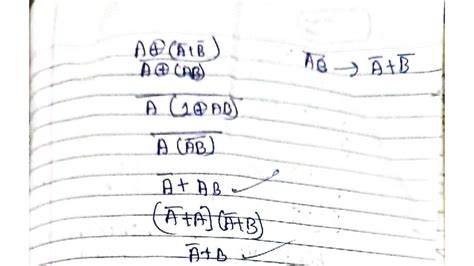 A⊕(Ā+B̅)
\overline{A⊕(AB)}
A̅B̅ → A̅+B̅
\overline{A (1⊕AB)}
\overline{A (\overline{AB})}
A̅ + AB ✓
(A̅+A) (A̅+B)
A̅+B ✓